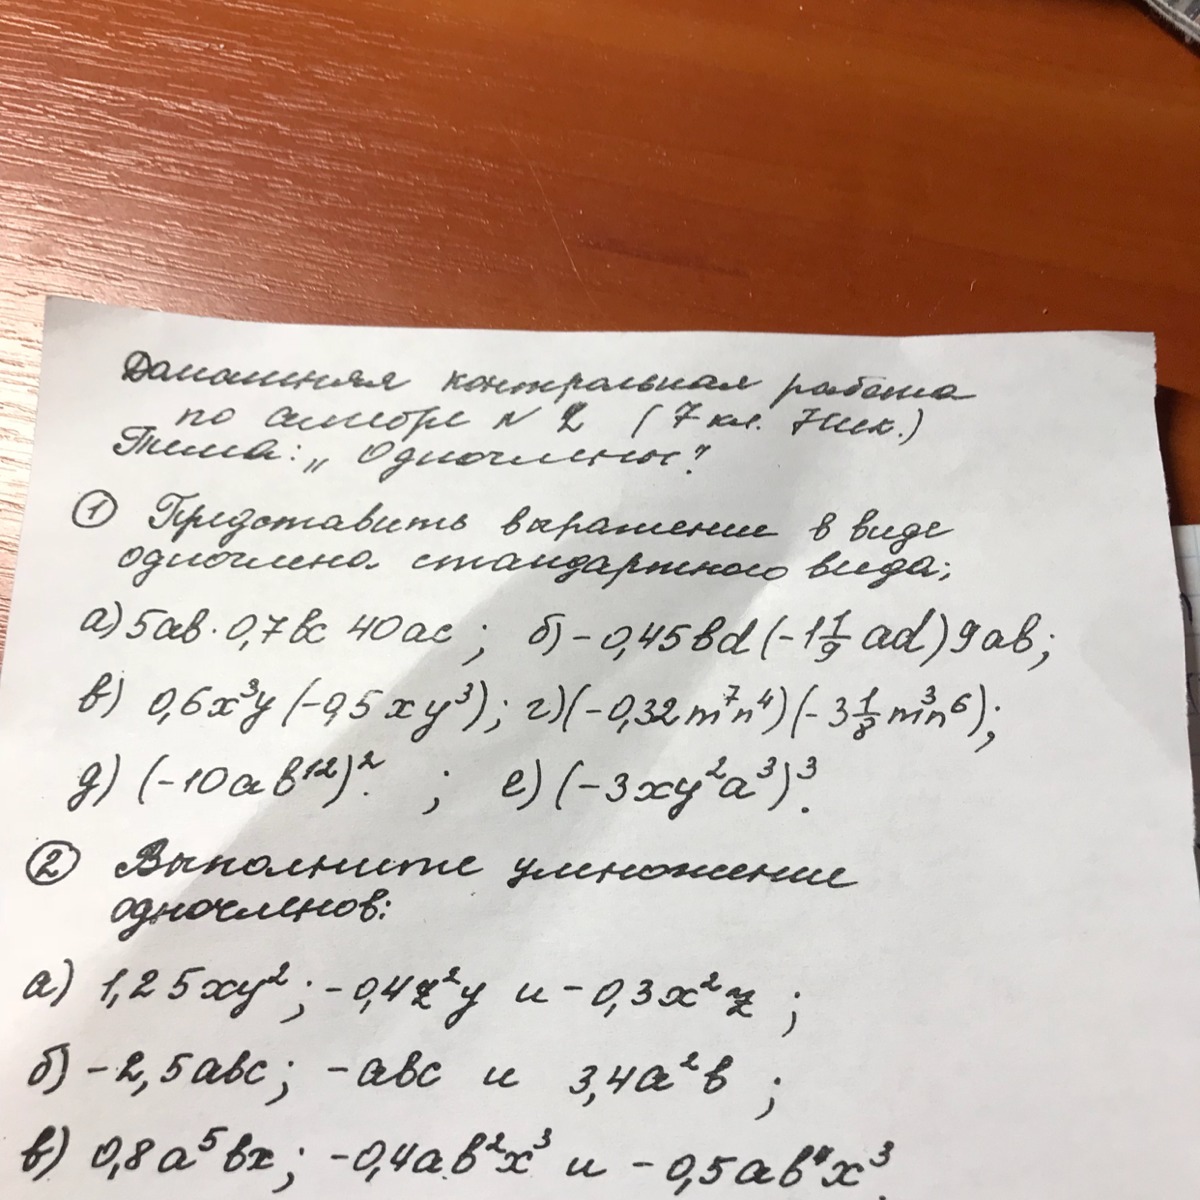 Домашняя контрольная работа
по алгебре N 2 (7 кл. 7 нед.)
Тема: „ Одночлены"
① Представить выражение в виде
одночлена стандартного вида;
а) 5ab·0,7bc 40ac ; б) -0,45bd(-1 1/9 ad)9ab;
в) 0,6x³y(-0,5xy³); г)(-0,32m⁷n⁴)(-3 1/8 m³n⁶);
д) (-10ab¹²)². ; е) (-3xy²a³)³.
② Выполните умножение
одночленов:
а) 1,25xy²; -0,4z²y и -0,3x²z ;
б) -2,5abc; -abc и 3,4a²b ;
в) 0,8a⁵bx; -0,4ab²x³ и -0,5ab⁴x³.